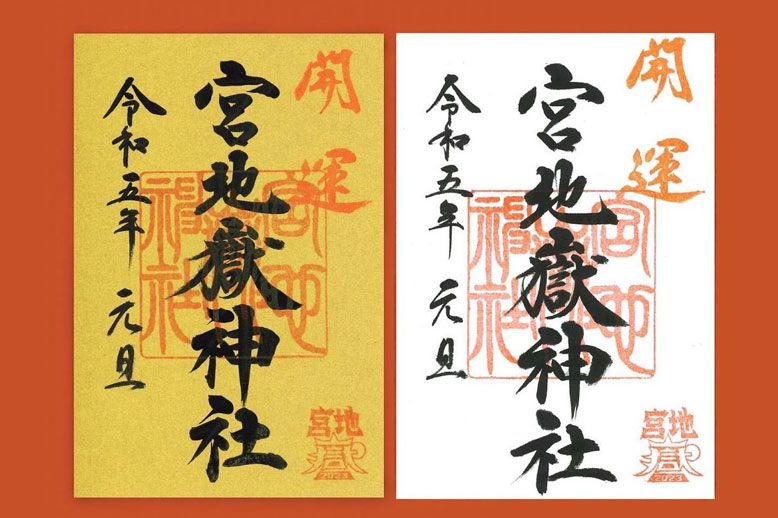 開運
宮地嶽神社
令和五年 元旦
宮地
神社
宮地
嶽
2023
開運
宮地嶽神社
令和五年 元旦
宮地
神社
宮地
嶽
2023